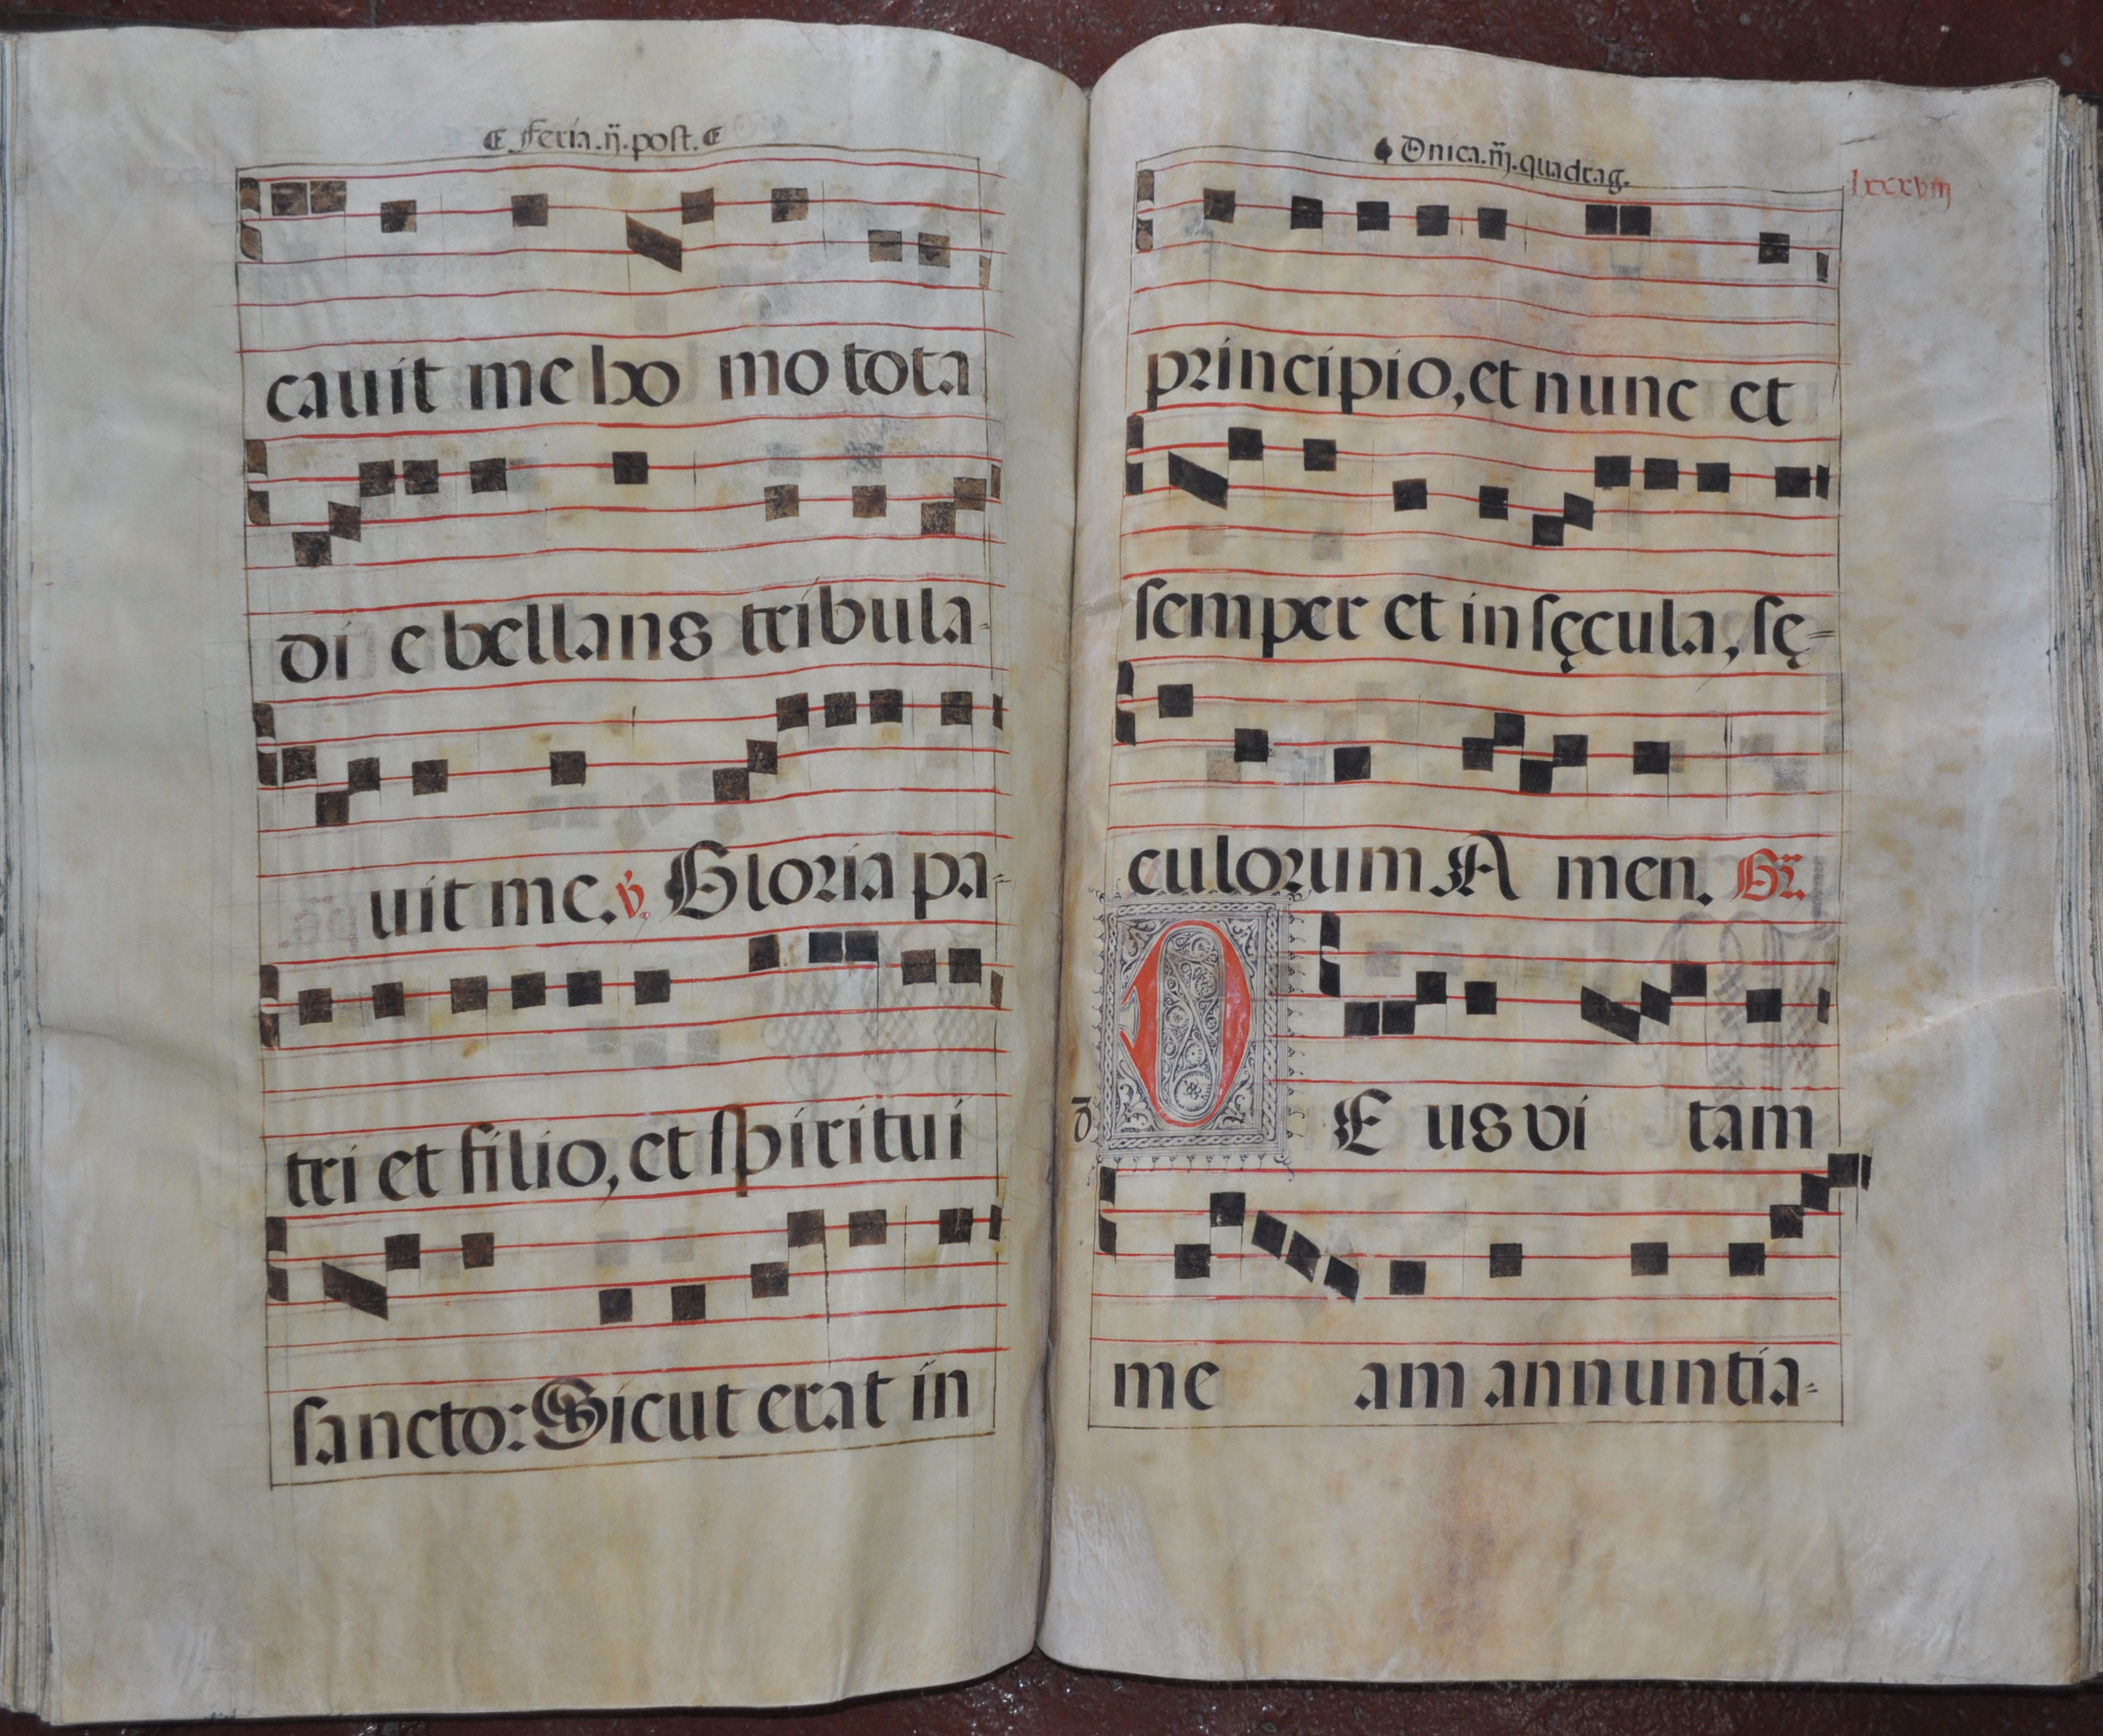 Feria.ij.post.
cauit me ho mo tota
di e bellans tribula-
uit me. v. Gloria pa-
tri et filio, et spiritui
sancto: Sicut erat in
Dnica.iij.quadrag.
lxxxviij
principio, et nunc et
semper et in sęcula, sę-
culorum A men. Gr.
d.
D E us vi tam
me am annuntia-